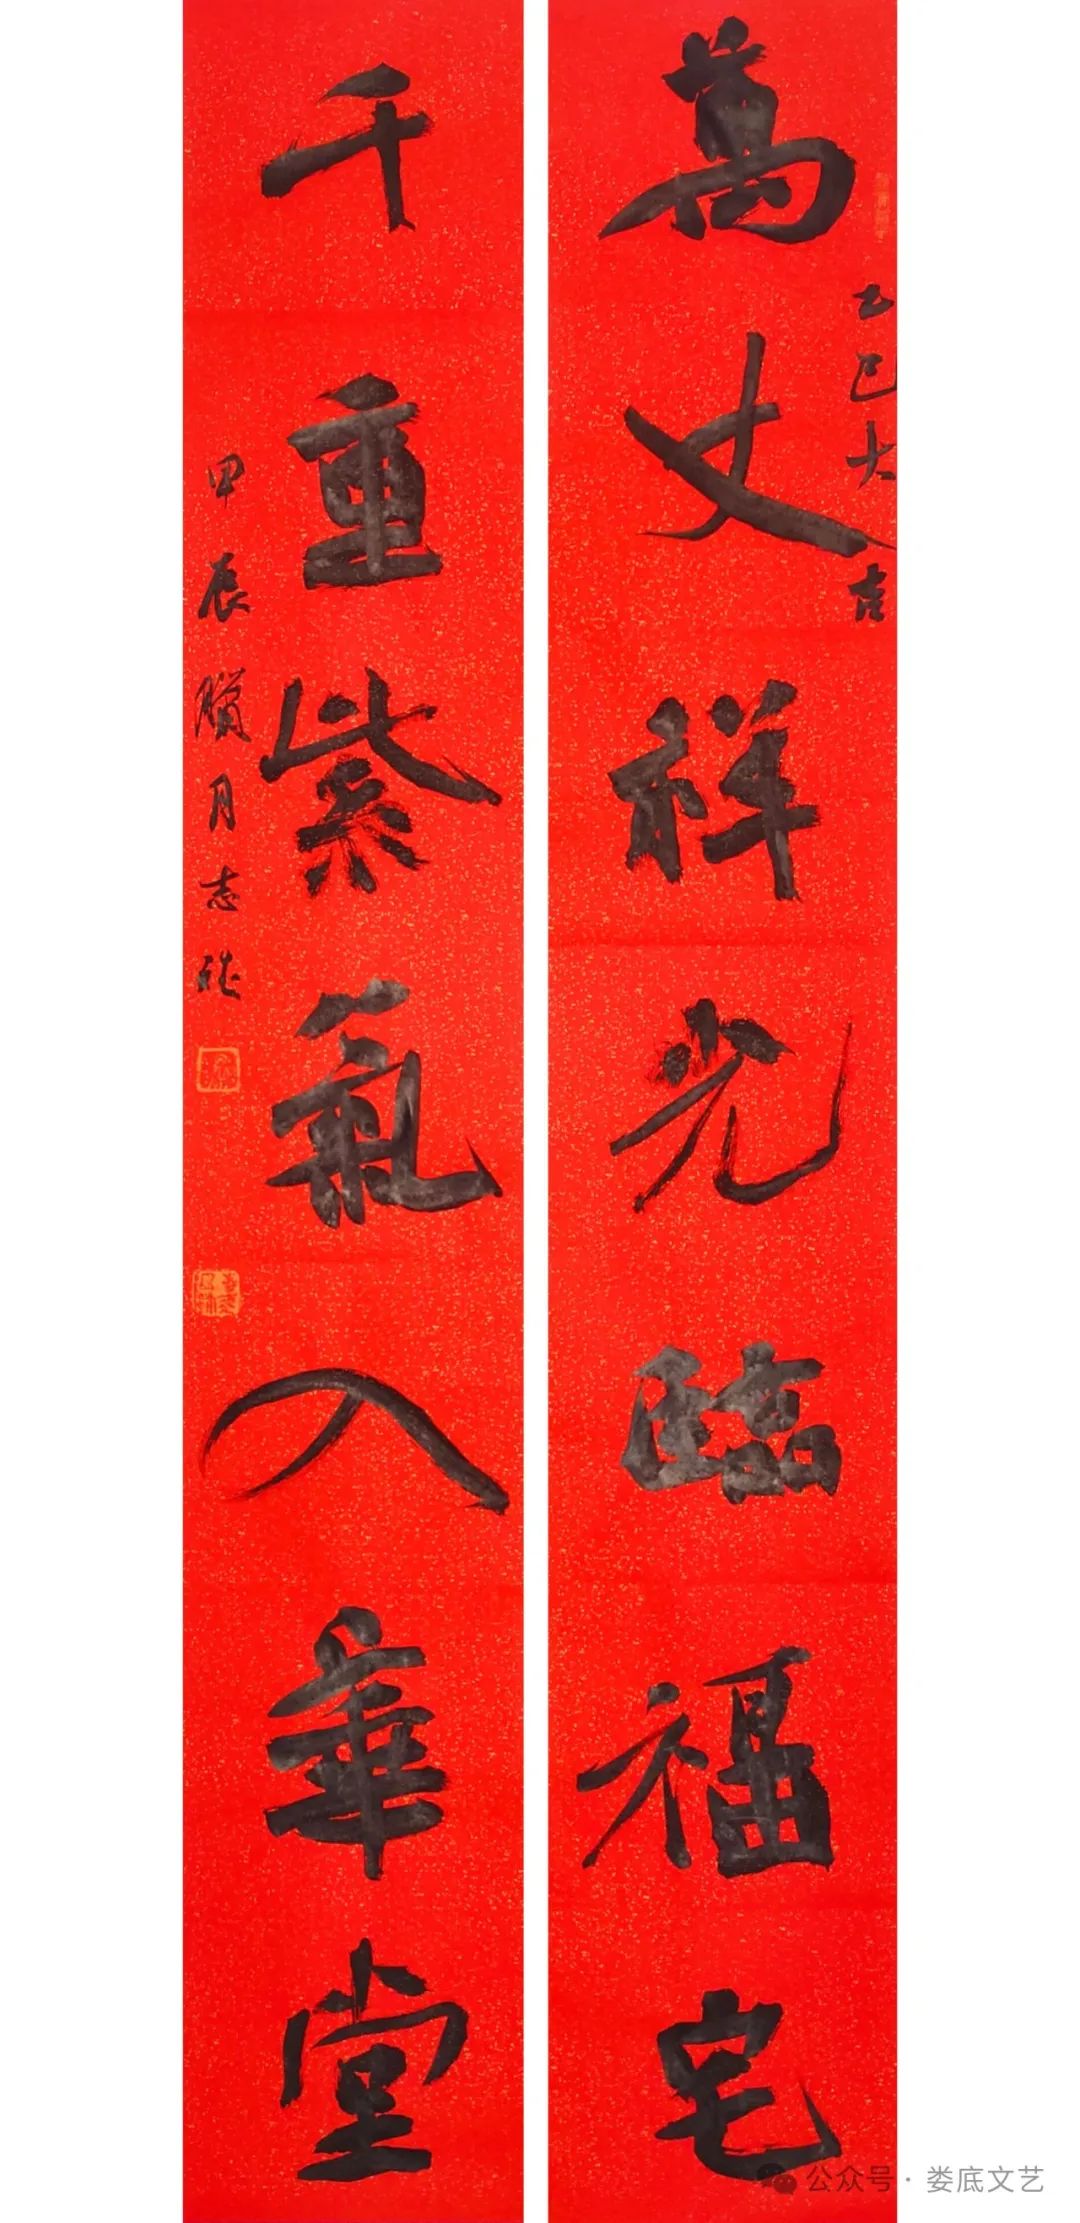 萬丈祥光臨福宅
乙巳大吉
千重紫氣入華堂
甲辰臘月志
公众号 · 娄底文艺